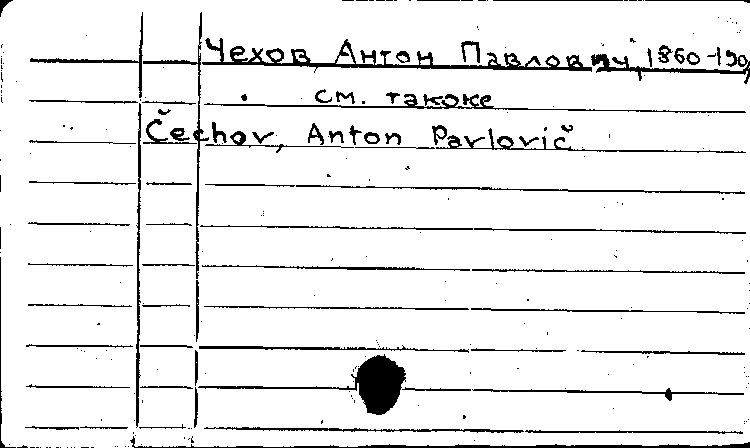 Чехов Антон Павлович, 1860-190
см. также
Čechov, Anton Pavlovič